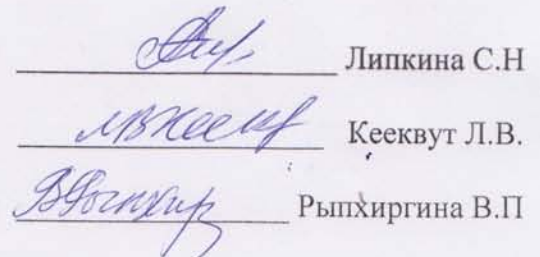 Липкина С.Н
Кееквут Л.В.
Рыпхиргина В.П